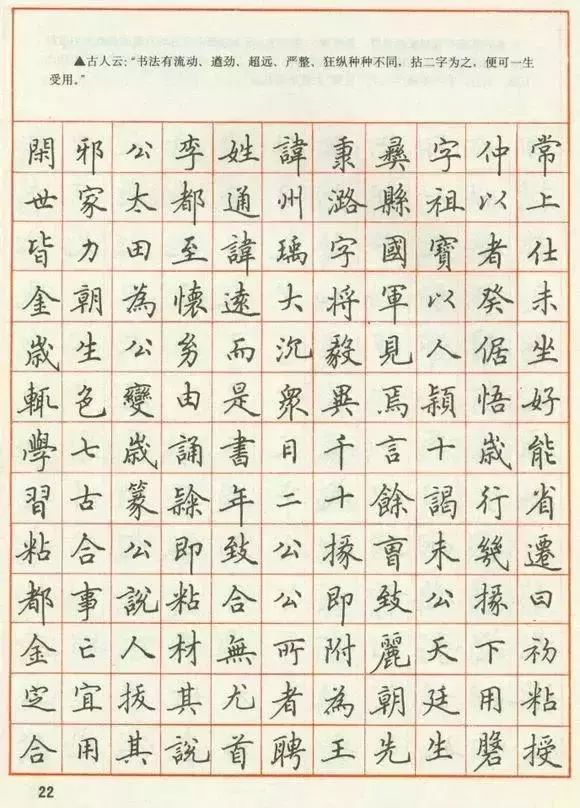 ▲古人云：“书法有流动、遒劲、超远、严整、狂纵种种不同，拈二字为之，便可一生
受用。”
閑邪公李姓諱秉彝字仲常
世家太都通州潞縣祖以上
皆力田至諱瑀字國寶者仕
金朝為懷遠大將軍以癸未
歲生公幼而沉毅見人倨坐
輒色變由是眾異焉穎悟好
學七歲誦書日千言十歲能
習古篆隸年二十餘謁行省
粘合公即致公掾曹未幾遷
都事說粘合公即致公掾曰
金亡人材無所附麗天下初
定宜拔其尤者為朝廷用粘
合用其說首聘王先生磐授
22